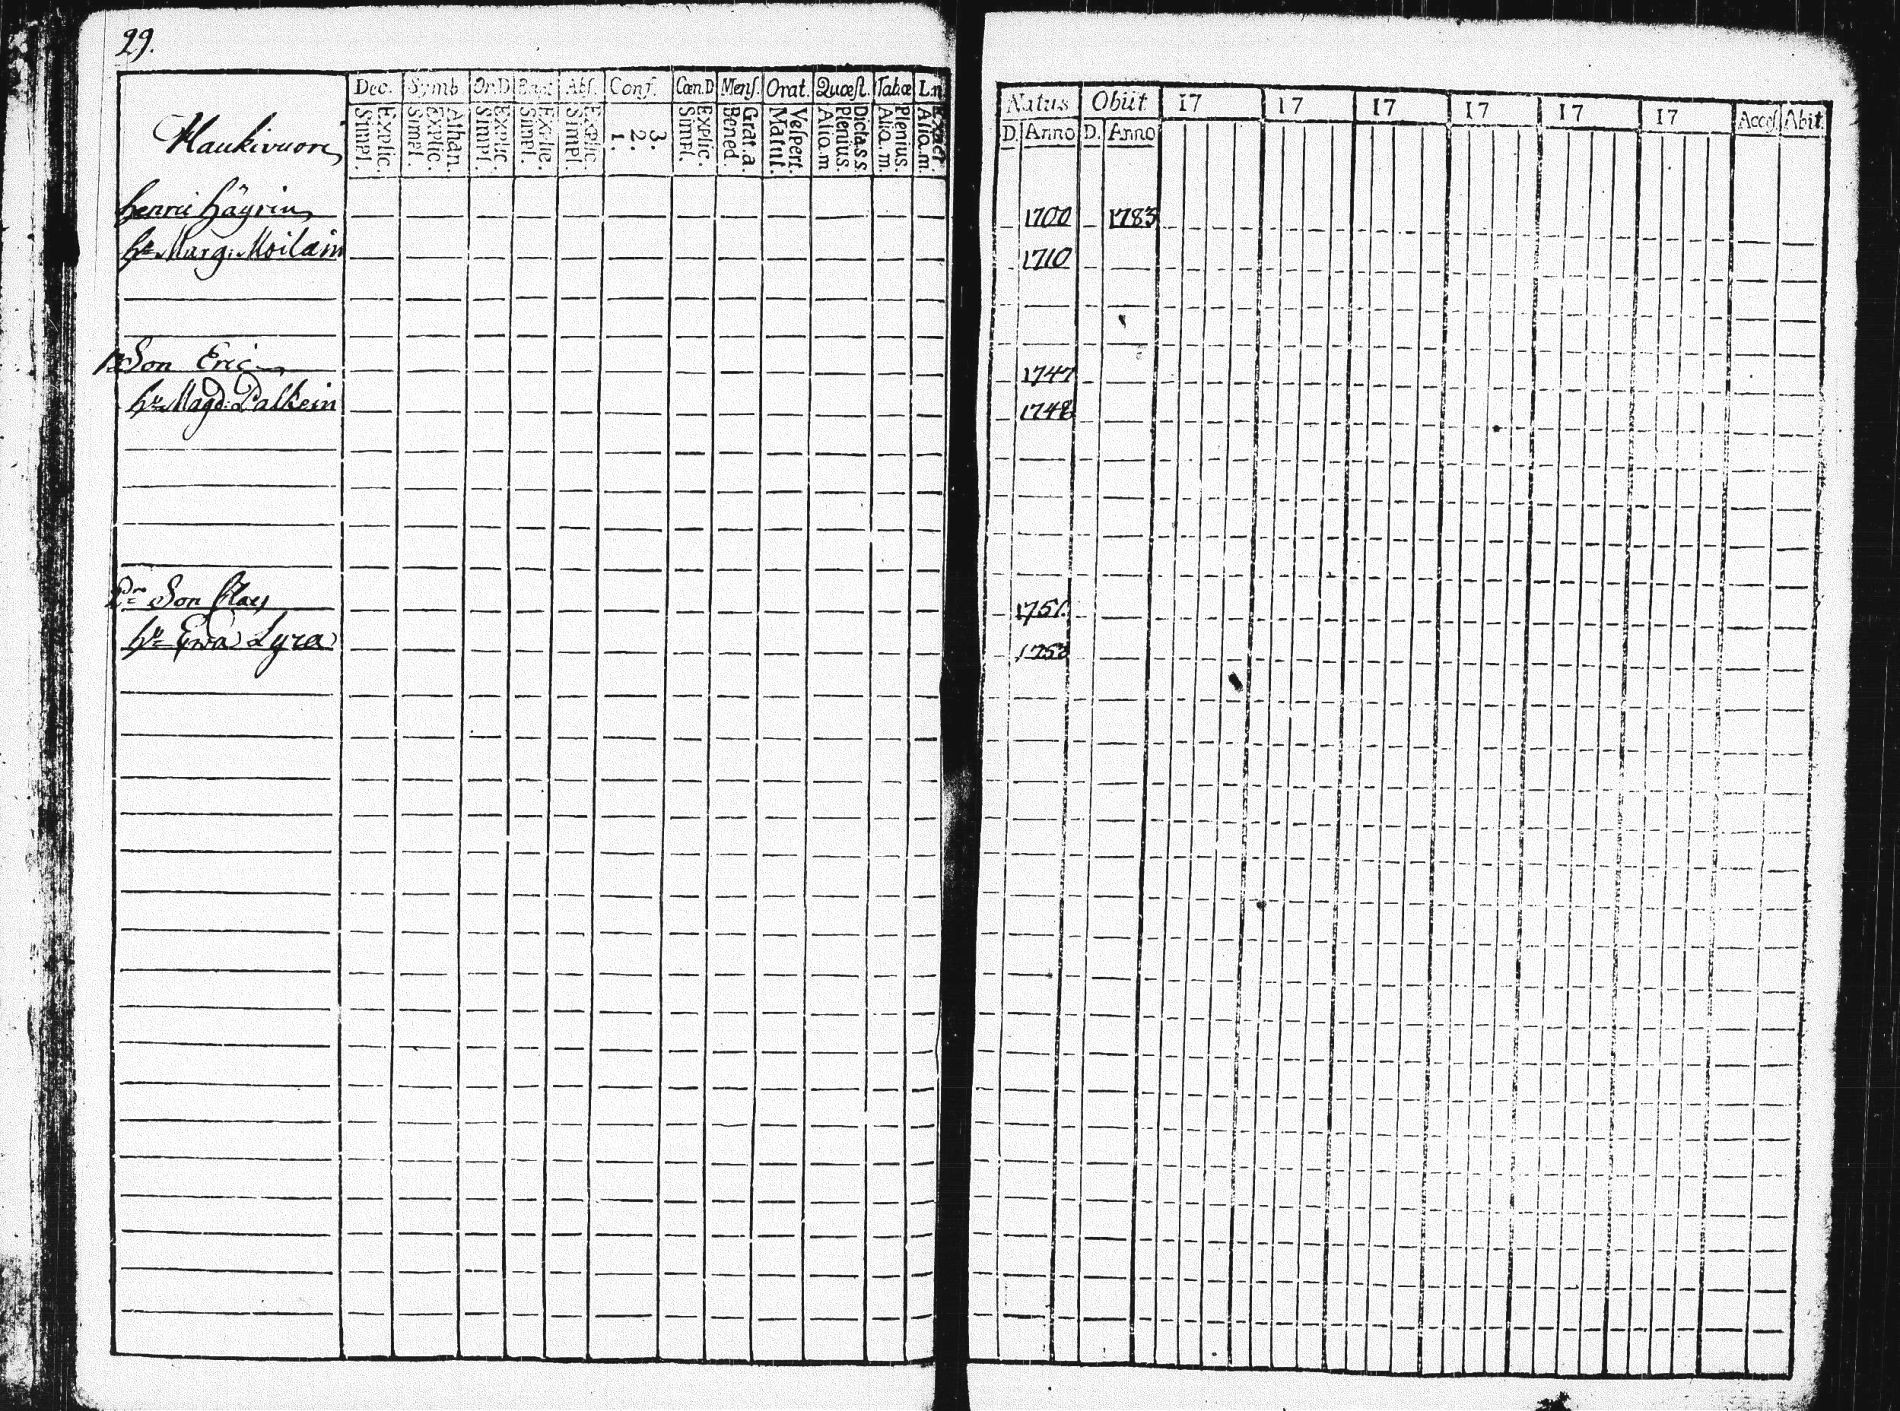 29.
Haukivuori
Dec. Symb Or.D Bapt Abs. Conf. Cœn.D Mens. Orat. Quæst. Tabæ
Explic. Simpl.
Athan. Explic. Simpl.
Explic. Simpl.
Explic. Simpl.
Explic. Simpl.
3. 2. 1.
Explic. Simpl.
Grat.a. Bened.
Vespert. Matut.
Dicta s.s. Plenius. Aliq.m
Plenius. Aliq.m.
Exact. Aliq.m.
Natus Obiit 17 17 17 17 17 17 Access. Abit.
D. Anno D. Anno
Henric Häyrin 1700 1783
hu Marg: Moilain 1710
1 Son Eric 1747
hu Magd: Palkein 1748
2r Son Clas 1751
hu Ewa Lyra 1758